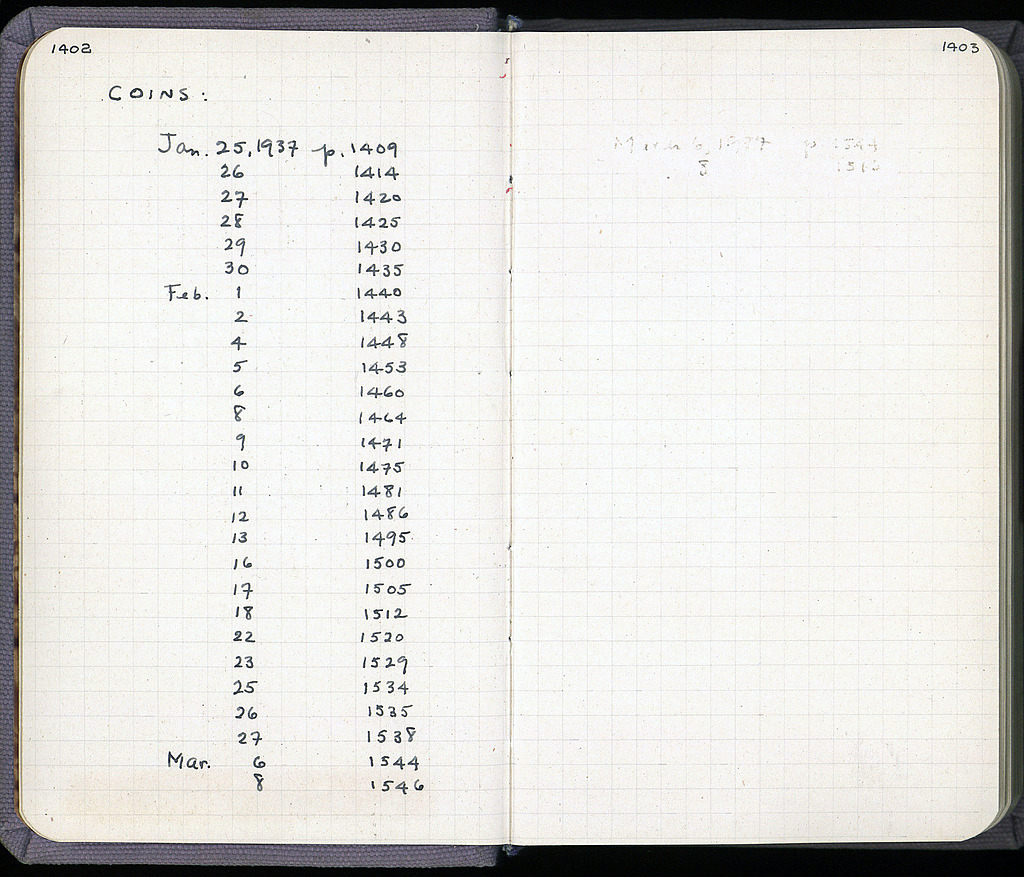 1402
COINS:
Jan. 25, 1937 p. 1409
26 1414
27 1420
28 1425
29 1430
30 1435
Feb. 1 1440
2 1443
4 1448
5 1453
6 1460
8 1464
9 1471
10 1475
11 1481
12 1486
13 1495
16 1500
17 1505
18 1512
22 1520
23 1529
25 1534
26 1535
27 1538
Mar. 6 1544
8 1546
1403
March 6, 1937 p. 1544
8